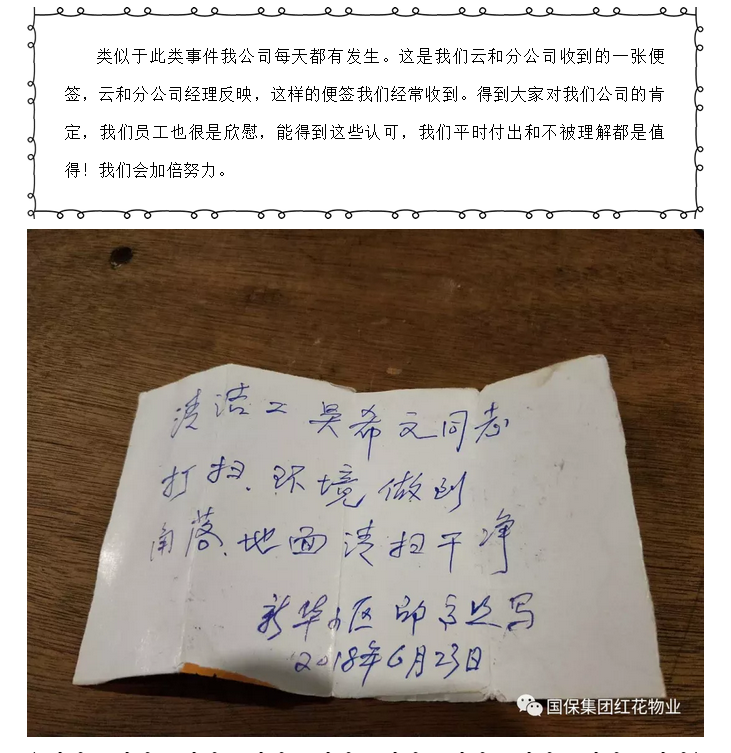 类似于此类事件我公司每天都有发生。这是我们云和分公司收到的一张便
签，云和分公司经理反映，这样的便签我们经常收到。得到大家对我们公司的肯
定，我们员工也很是欣慰，能得到这些认可，我们平时付出和不被理解都是值
得！我们会加倍努力。
清洁工吴希文同志
打扫、环境做到
角落、地面清扫干净
新华小区
2018年6月23日
国保集团红花物业